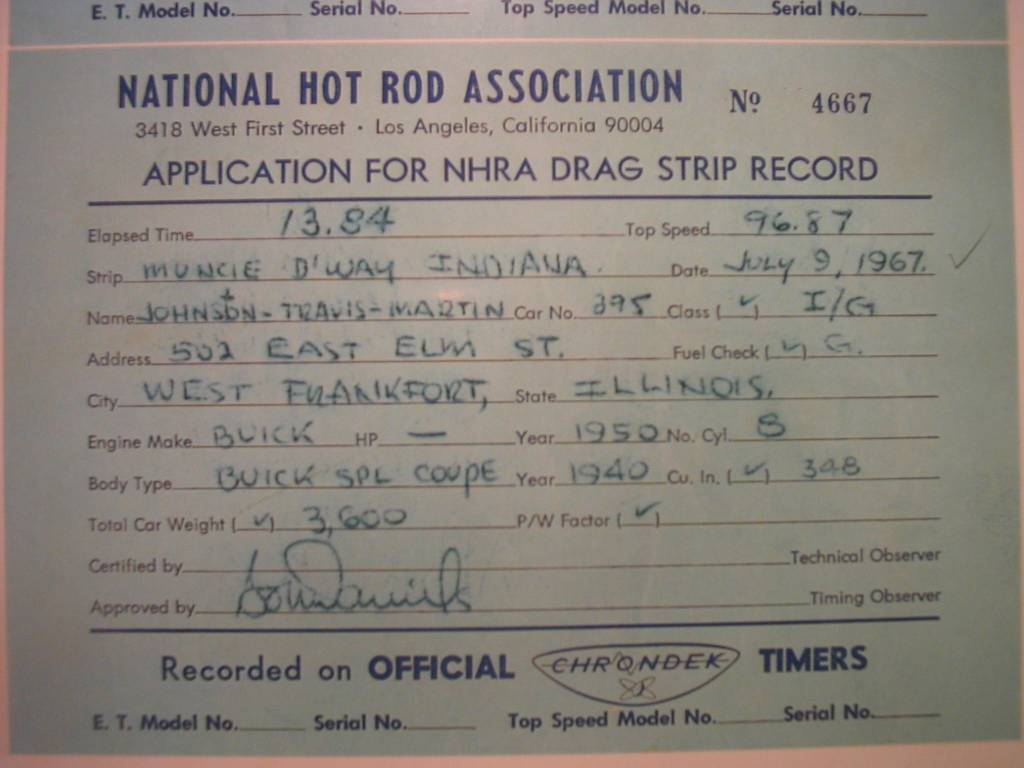 E. T. Model No. Serial No. Top Speed Model No. Serial No.
NATIONAL HOT ROD ASSOCIATION Nº 4667
3418 West First Street · Los Angeles, California 90004
APPLICATION FOR NHRA DRAG STRIP RECORD
Elapsed Time 13.84 Top Speed 96.87
Strip MUNCIE D'WAY INDIANA. Date JULY 9, 1967. ✓
Name JOHNSON - TRAVIS - MARTIN Car No. 395 Class (✓) I/G
Address 502 EAST ELM ST. Fuel Check (✓) G.
City WEST FRANKFORT, State ILLINOIS.
Engine Make BUICK HP — Year 1950 No. Cyl. 8
Body Type BUICK SPL COUPE Year 1940 Cu. In. (✓) 348
Total Car Weight (✓) 3,600 P/W Factor (✓)
Certified by Technical Observer
Approved by Timing Observer
Recorded on OFFICIAL CHRONDEK TIMERS
E. T. Model No. Serial No. Top Speed Model No. Serial No.